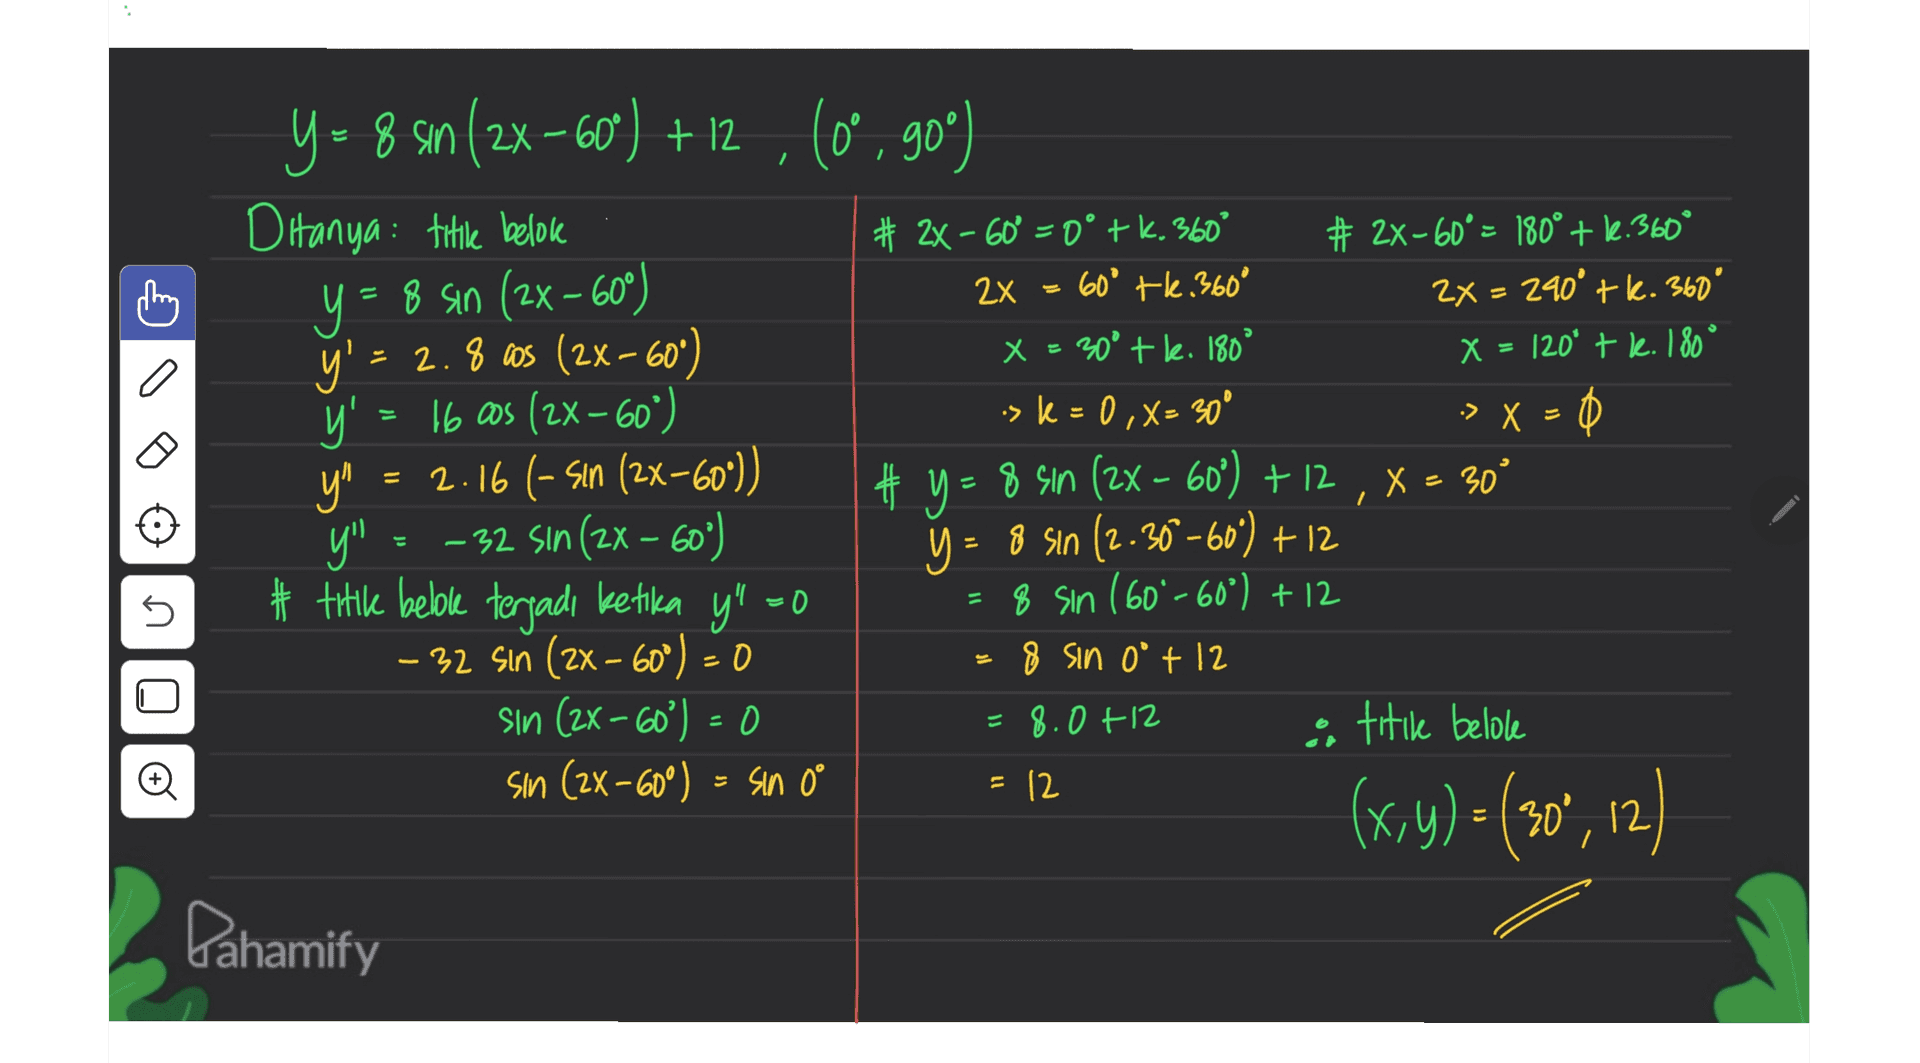 y = 8 sin (2x – 60°) + 12 , (0°, 90°)
Ditanya : titik belok
y = 8 sin (2x – 60°)
y' = 2 . 8 cos (2x – 60°)
y' = 16 cos (2x – 60°)
y'' = 2 . 16 (– sin (2x – 60°))
y'' = – 32 sin (2x – 60°)
# titik belok terjadi ketika y'' = 0
– 32 sin (2x – 60°) = 0
sin (2x – 60°) = 0
sin (2x – 60°) = sin 0°
# 2x – 60° = 0° + k. 360°
2x = 60° + k. 360°
x = 30° + k. 180°
·> k = 0 , x = 30°
# 2x – 60° = 180° + k. 360°
2x = 240° + k. 360°
x = 120° + k. 180°
·> x = ϕ
# y = 8 sin (2x – 60°) + 12 , x = 30°
y = 8 sin (2 . 30° – 60°) + 12
= 8 sin (60° – 60°) + 12
= 8 sin 0° + 12
= 8 . 0 + 12
= 12
∴ titik belok
(x, y) = (30°, 12)
Pahamify